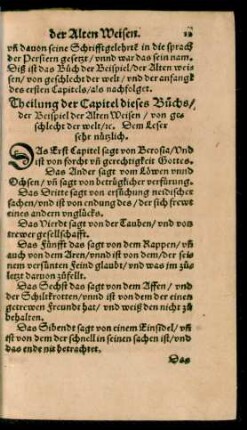 der Alten Weisen.
vñ dauon seine Schrifftgelehrte in die sprach
der Persiern gesetzt / vnnd war das sein nam.
Diß ist das Bůch der Beispiel / der Alten weis
sen / von geschlecht der welt / vnd der anfang
des ersten Capitels / als nachfolget.
Theilung der Capitel dieses Bůchs /
der Beispiel der Alten Weisen / von ges
schlecht der welt / ⁊c. Dem Leser
sehr nützlich.
DAs Erst Capitel sagt von Berosia / Vnd
ist von forcht vñ gerechtigkeit Gottes.
Das Ander sagt vom Löwen vnnd
Ochsen / vñ sagt von betrüglicher verfürung.
Das Dritte sagt von erfůchung neidischer
sachen / vnd ist von endung des / der sich frewt
eines andern vnglücks.
Das Vierdt sagt von der Tauben / vnd von
trewer gesellschafft.
Das Fünfft das sagt von dem Rappen / vñ
auch von dem Aren / vnnd ist von dem / der sei
nem versünten Feind glaubt / vnd was im zůs
letzt daruon zůfellt.
Das Sechst das sagt von dem Affen / vnd
der Schiltkrotten / vnnd ist von dem der einen
getrewen Freundt hat / vnd weiß den nicht zů
behalten.
Das Sibendt sagt von einem Einsidel / vñ
ist von dem der schnell in seinen sachen ist / vnd
das ende nit betrachtet.
Das